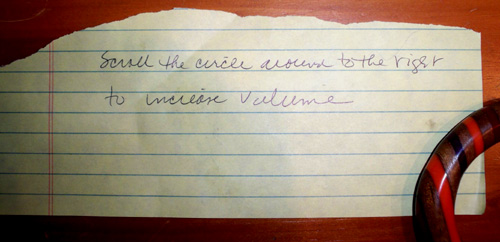 Scroll the circle around to the right
to increase volume